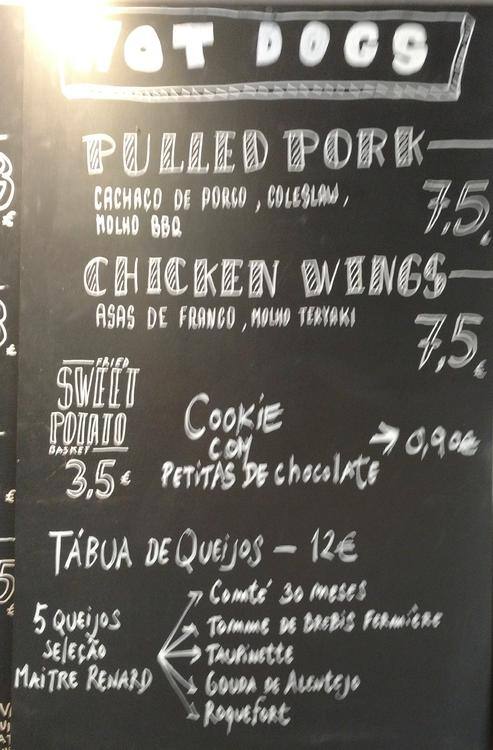 HOT DOGS
PULLED PORK
CACHAÇO DE PORCO, COLESLAW,
MOLHO BBQ
7,5
CHICKEN WINGS
ASAS DE FRANGO, MOLHO TERYAKI
7,5€
FRIED
SWEET
POTATO
BASKET
3,5€
COOKIE
COM
PETITAS DE chocolate
→ 0,90€
TÁBUA DE QUEIJOS — 12€
5 QUEIJOS
SELEÇÃO
MAITRE RENARD
Comté 30 MESES
TOMME DE BREBIS FERMIÈRE
TAUPINETTE
GOUDA DE ALENTEJO
ROQUEFORT